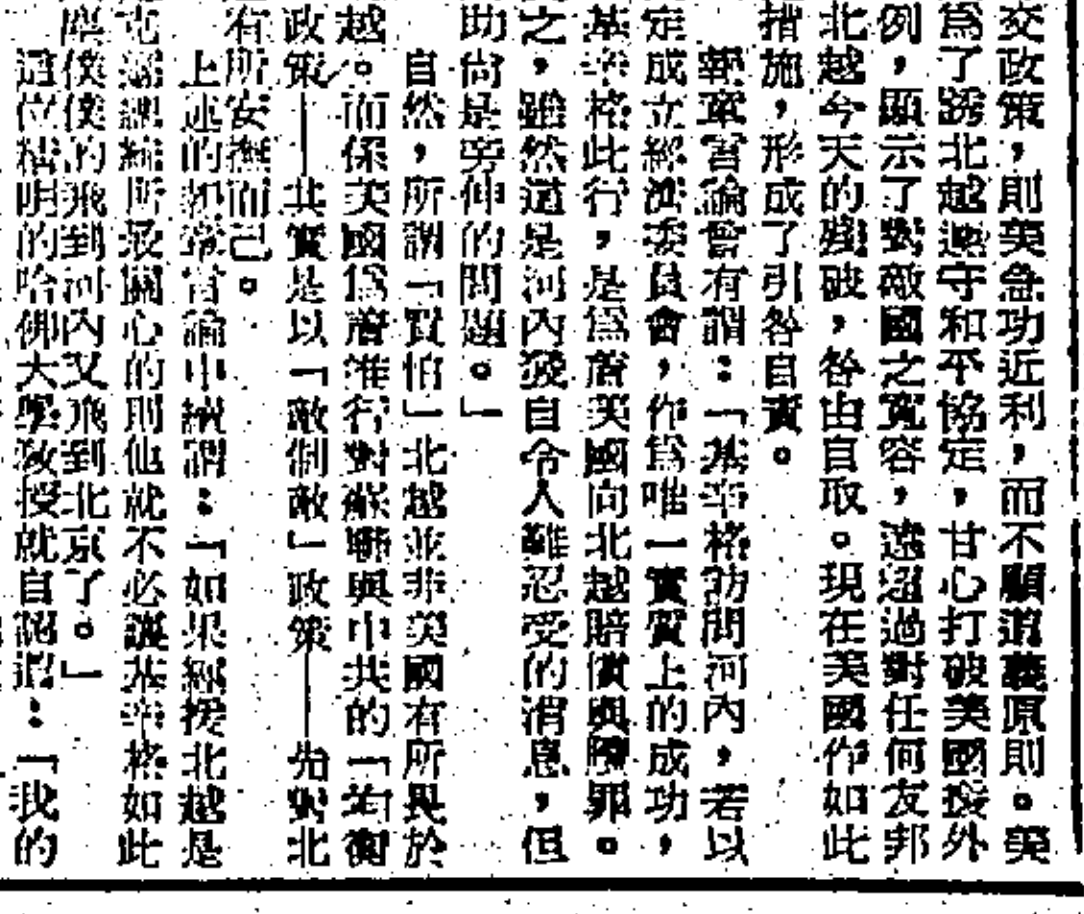 交政策，則美急功近利，而不顧道義原則。美
爲了誘北越遵守和平協定，甘心打破美國援外
例，顯示了對敵國之寬容，遠超過對任何友邦
北越今天的殘破，咎由自取。現在美國作如此
措施，形成了引咎自責。
報章言論曾有謂：「基辛格訪問河內，若以
定成立經濟委員會，作爲唯一實質上的成功，
基辛格此行，是爲着美國向北越賠償與贖罪。
之，雖然這是河內發自令人難忍受的消息，但
助尚是旁伸的問題。」
自然，所謂「買怕」北越並非美國有所畏於
越。而係美國爲着推行對蘇聯與中共的「均衡
政策——其實是以「敵制敵」政策——先對北
有所安撫而已。
上述的報章言論中續謂：「如果經援北越是
總統所最關心的則他就不必讓基辛格如此
僕僕的飛到河內又飛到北京了。」
這位精明的哈佛大學教授就自認過：「我的